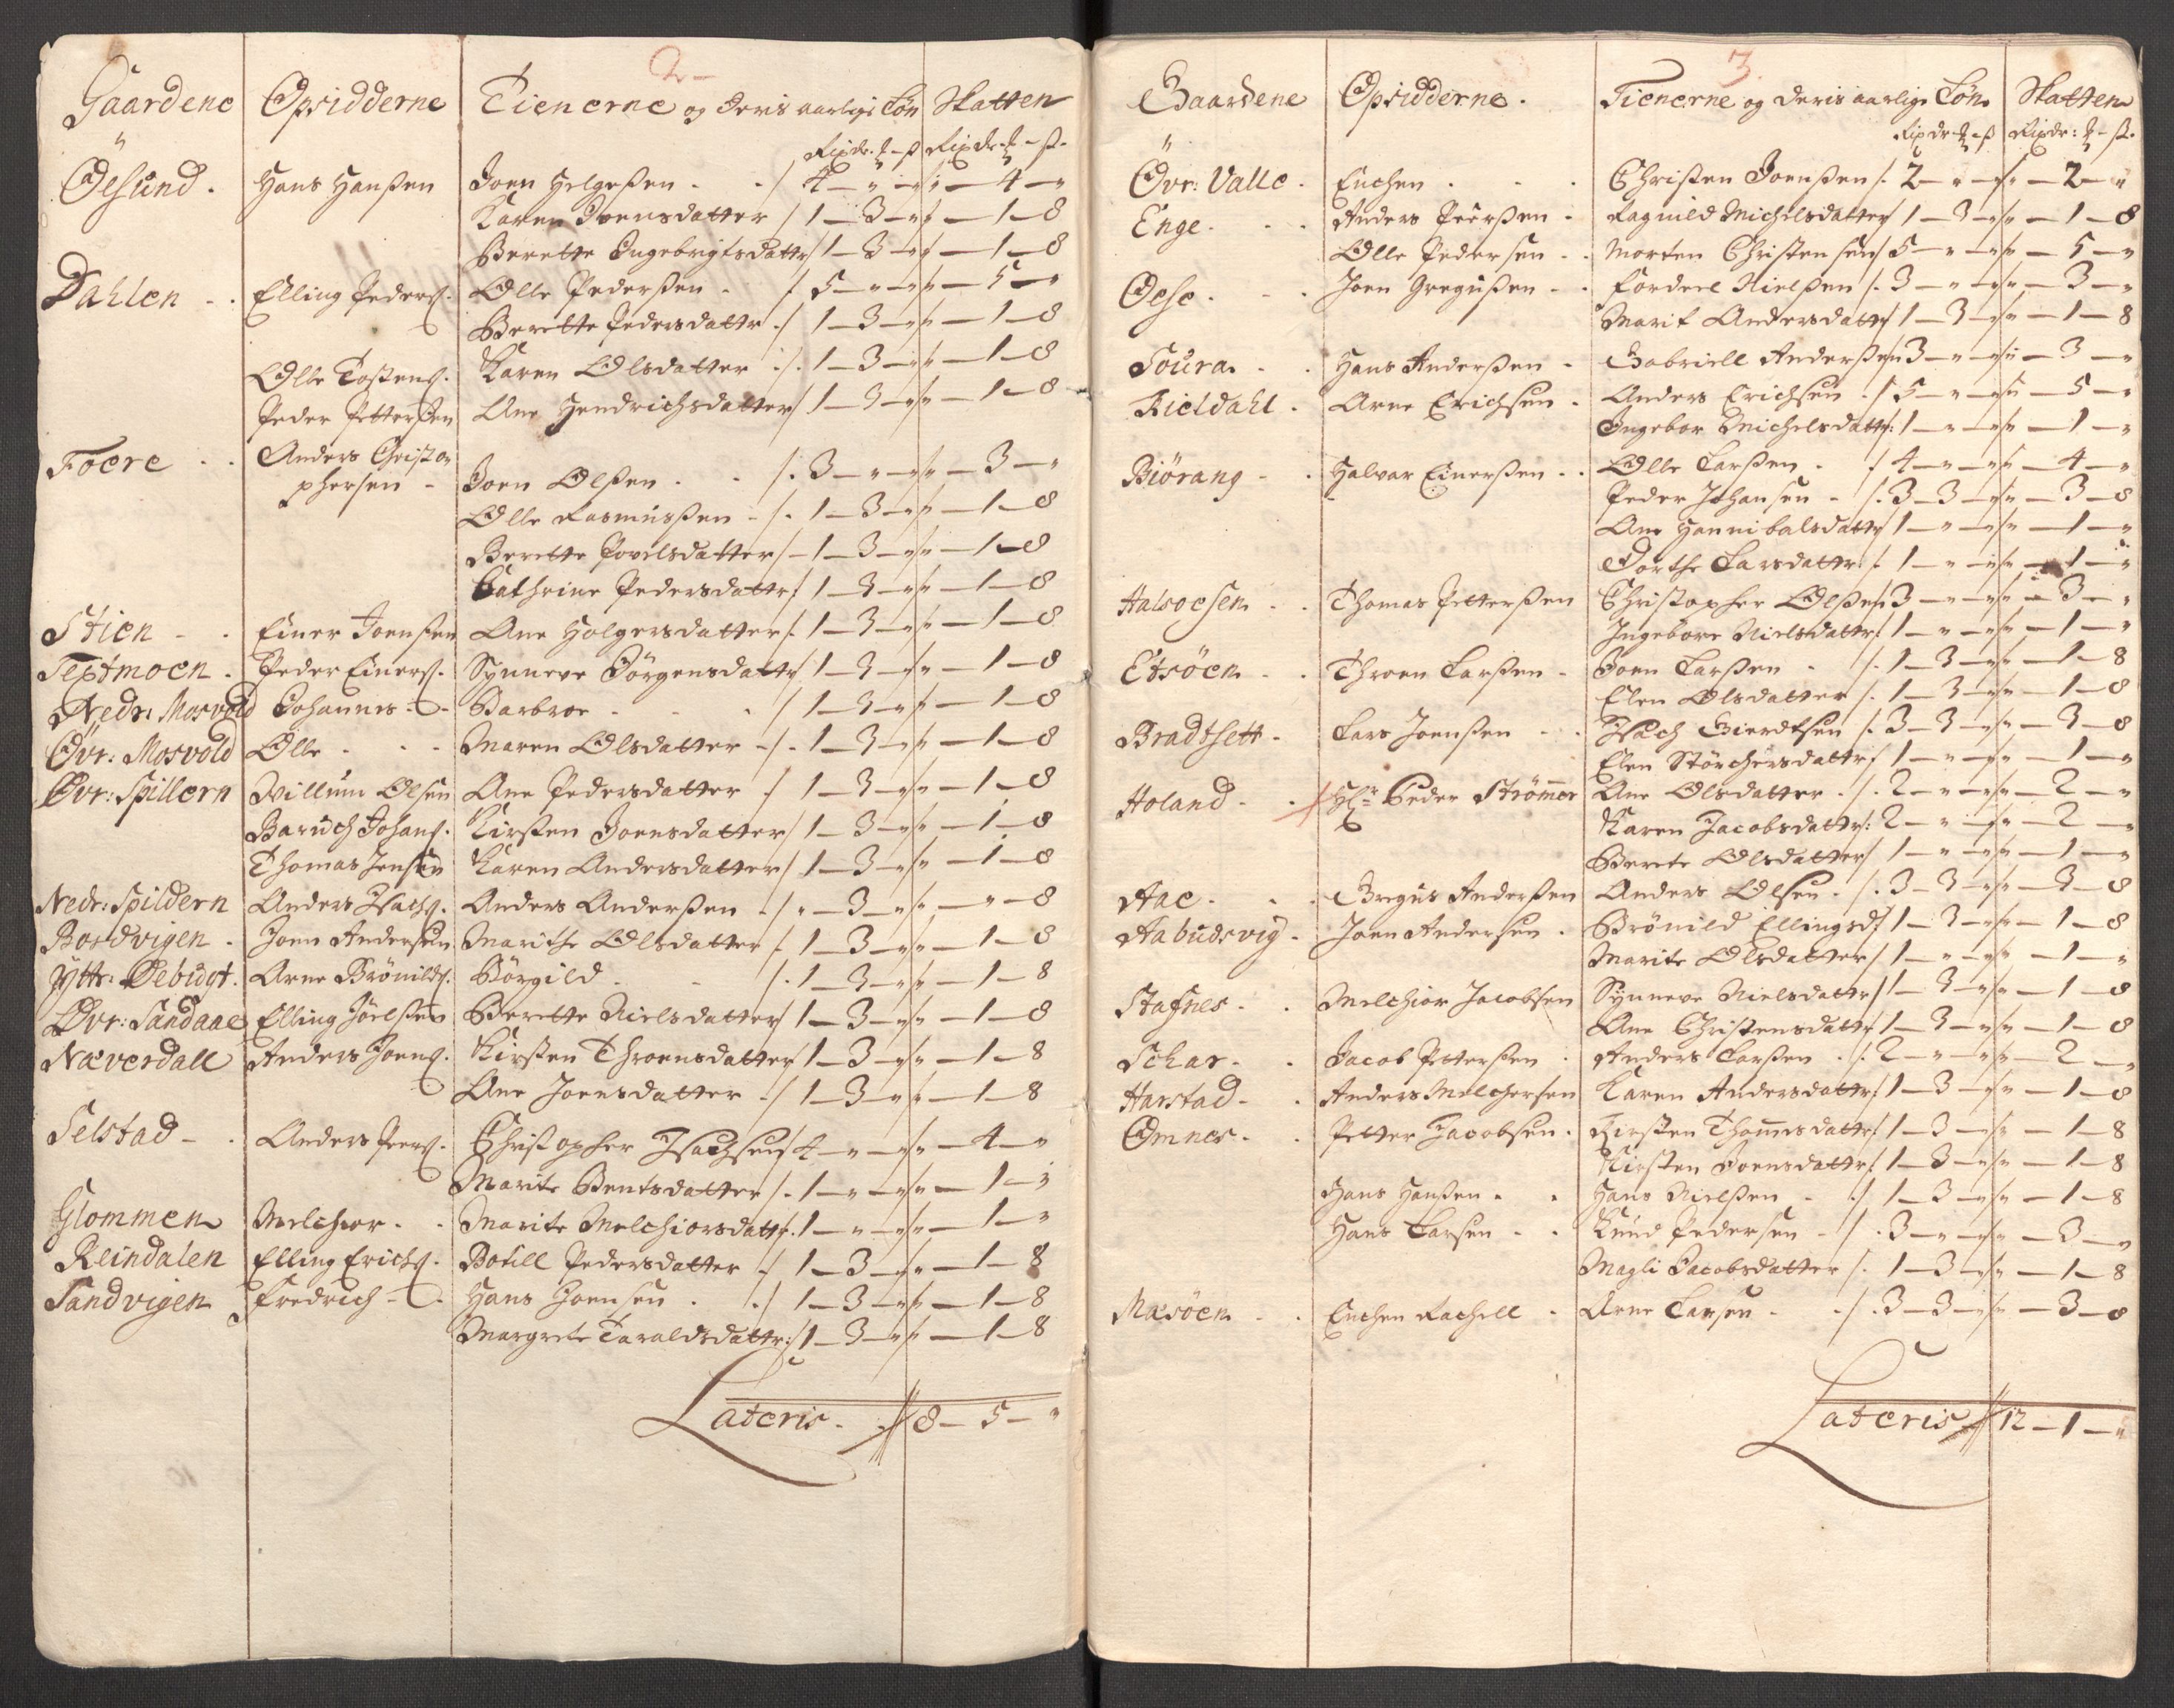 2
Gaardene Opsidderne Tienerne og deris aarlige Løn Skatten
Rixdr. ß Rixdr. ß
Øesund. Hans Hanßen Joen Helgeßen 4 – " – " " – 4 – "
Karen Joensdatter 1 – 3 – " " – 1 – 8
Berette Ingebrigtsdattr 1 – 3 – " " – 1 – 8
Dahlen Elling Peders. Olle Pederßen 5 – " – " " – 5 – "
Berette Pedersdattr 1 – 3 – " " – 1 – 8
Olle Tostens. Karen Olsdatter 1 – 3 – " " – 1 – 8
Peder Petterßen Ane Hendrichsdatter 1 – 3 – " " – 1 – 8
Foere Anders Christo
phersen Joen Olßen 3 – " – " " – 3 – "
Olle Rasmußen 1 – 3 – " " – 1 – 8
Berette Povelsdatter 1 – 3 – " " – 1 – 8
Cathrine Pedersdattr 1 – 3 – " " – 1 – 8
Stien Einer Joenßen Ane Holgersdatter 1 – 3 – " " – 1 – 8
Teptmoen. Peder Einers. Synneve Jörgensdattr 1 – 3 – " " – 1 – 8
Nedr: Mosvold Johannes Barbroe 1 – 3 – " " – 1 – 8
Øvr: Mosvold Olle Maren Olsdatter 1 – 3 – " " – 1 – 8
Øvr: Spillern Willum Olsen Ane Pedersdatter 1 – 3 – " " – 1 – 8
Baruch Johans. Kirsten Joensdatter 1 – 3 – " " – 1 – 8
Thomas Jensen Karen Andersdatter 1 – 3 – " " – 1 – 8
Nedr: Spildern Anders Isachs. Anders Anderßen " – 3 – " " – " – 8
Bordvigen. Joen Andersen Marithe Olsdatter 1 – 3 – " " – 1 – 8
Yttr: Debugt. Arne Brönilds. Börgild 1 – 3 – " " – 1 – 8
Øvr: Sandaae Elling Joelßen Berette Nielsdatter 1 – 3 – " " – 1 – 8
Næverdall Anders Joens. Kirsten Throensdatter 1 – 3 – " " – 1 – 8
Ane Joensdatter 1 – 3 – " " – 1 – 8
Selstad Anders Peers. Christopher Isachsen 4 – " – " " – 4 – "
Marite Bentsdatter 1 – " – " " – 1 – "
Glommen Melchior Marite Melchiorsdattr. 1 – " – " " – 1 – "
Reindalen Elling Erichs. Botill Pedersdatter 1 – 3 – " " – 1 – 8
Sandvigen Fredrich Hans Joensen 1 – 3 – " " – 1 – 8
Margrete Taraldsdattr: 1 – 3 – " " – 1 – 8
Lateris 8 – 5 – "
3
Gaardene Opsidderne. Tienerne og deris aarlige Løn Skatten
Rixdr ß Rixdr: ß
Øvr: Valle. Enchen Christen Joenßen 2 – " – " " – 2 – "
Enge. Anders Peerßen Ragnild Michelsdatter 1 – 3 – " " – 1 – 8
Olle Pedersen Morten Christensen 5 – " – " " – 5 – "
Oese. Joen Gregußen Fordeel Nielßen 3 – " – " " – 3 – "
Marit Andersdattr 1 – 3 – " " – 1 – 8
Soura. Hans Anderßen Gabriell Anderßen 3 – " – " " – 3 – "
Kieldahl. Arne Erichsen Anders Erichsen 5 – " – " " – 5 – "
Ingebor Michelsdattr: 1 – " – " " – 1 – "
Biörang Halvor Einerßen Olle Larßen 4 – " – " " – 4 – "
Peder Johansen 3 – 3 – " " – 3 – 8
Ane Hannibalsdattr 1 – " – " " – 1 – "
Dorthe Larsdattr 1 – " – " " – 1 – "
Halsoesen Thomas Petterßen Christopher Olßen 3 – " – " " – 3 – "
Ingeborr Nielsdattr 1 – " – " " – 1 – "
Etsöen Throen Larßen Joen Larßen 1 – 3 – " " – 1 – 8
Elen Olsdatter 1 – 3 – " " – 1 – 8
Bradtsett Lars Joenßen Isach Gierdtsen 3 – 3 – " " – 3 – 8
Elen Störchersdattr 1 – " – " " – 1 – "
Holand Hr. Peder Strömer Ane Olsdatter 2 – " – " " – 2 – "
Karen Jacobsdattr: 2 – " – " " – 2 – "
Berete Olsdatter 1 – " – " " – 1 – "
Aae Gregus Anderßen Anders Olsen 3 – 3 – " " – 3 – 8
Aabudsvig Joen Andersen Brönild Ellingsd 1 – 3 – " " – 1 – 8
Marite Olsdatter 1 – " – " " – 1 – "
Stafnes Melchior Jacobsen Synneve Nielsdattr 1 – 3 – " " – 1 – 8
Ane Christensdattr 1 – 3 – " " – 1 – 8
Schar Jacob Petterßen Anders Larßen 2 – " – " " – 2 – "
Harstad Anders Melchersen Karen Andersdattr 1 – 3 – " " – 1 – 8
Omnes Petter Jacobsen. Kirsten Thommesdattr 1 – 3 – " " – 1 – 8
Kirsten Joensdattr 1 – 3 – " " – 1 – 8
Hans Hanßen Hans Nielßen 1 – 3 – " " – 1 – 8
Hans Larsen Knud Pedersen 3 – " – " " – 3 – "
Magli Jacobsdatter 1 – 3 – " " – 1 – 8
Mæsöen Enchen Rachell Arne Larsen 3 – 3 – " " – 3 – 8
Lateris 12 – 1 – "